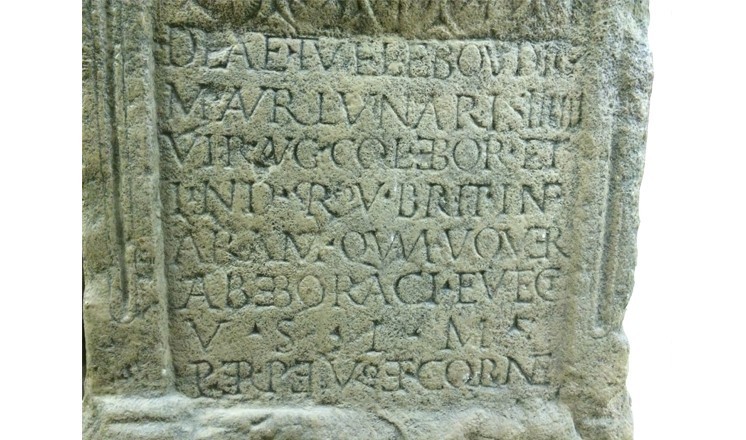 DEAE·TVTELE BOVDIG
M·AVR·LVNARIS·IIIIII
VIR·AVG·COL·EBOR·ET
LIND·PROV·BRIT·INF
ARAM·QVAM·VOVER
AB·EBORACI·EVECT
V·S·L·M·
PERPETVO·ET·CORNE